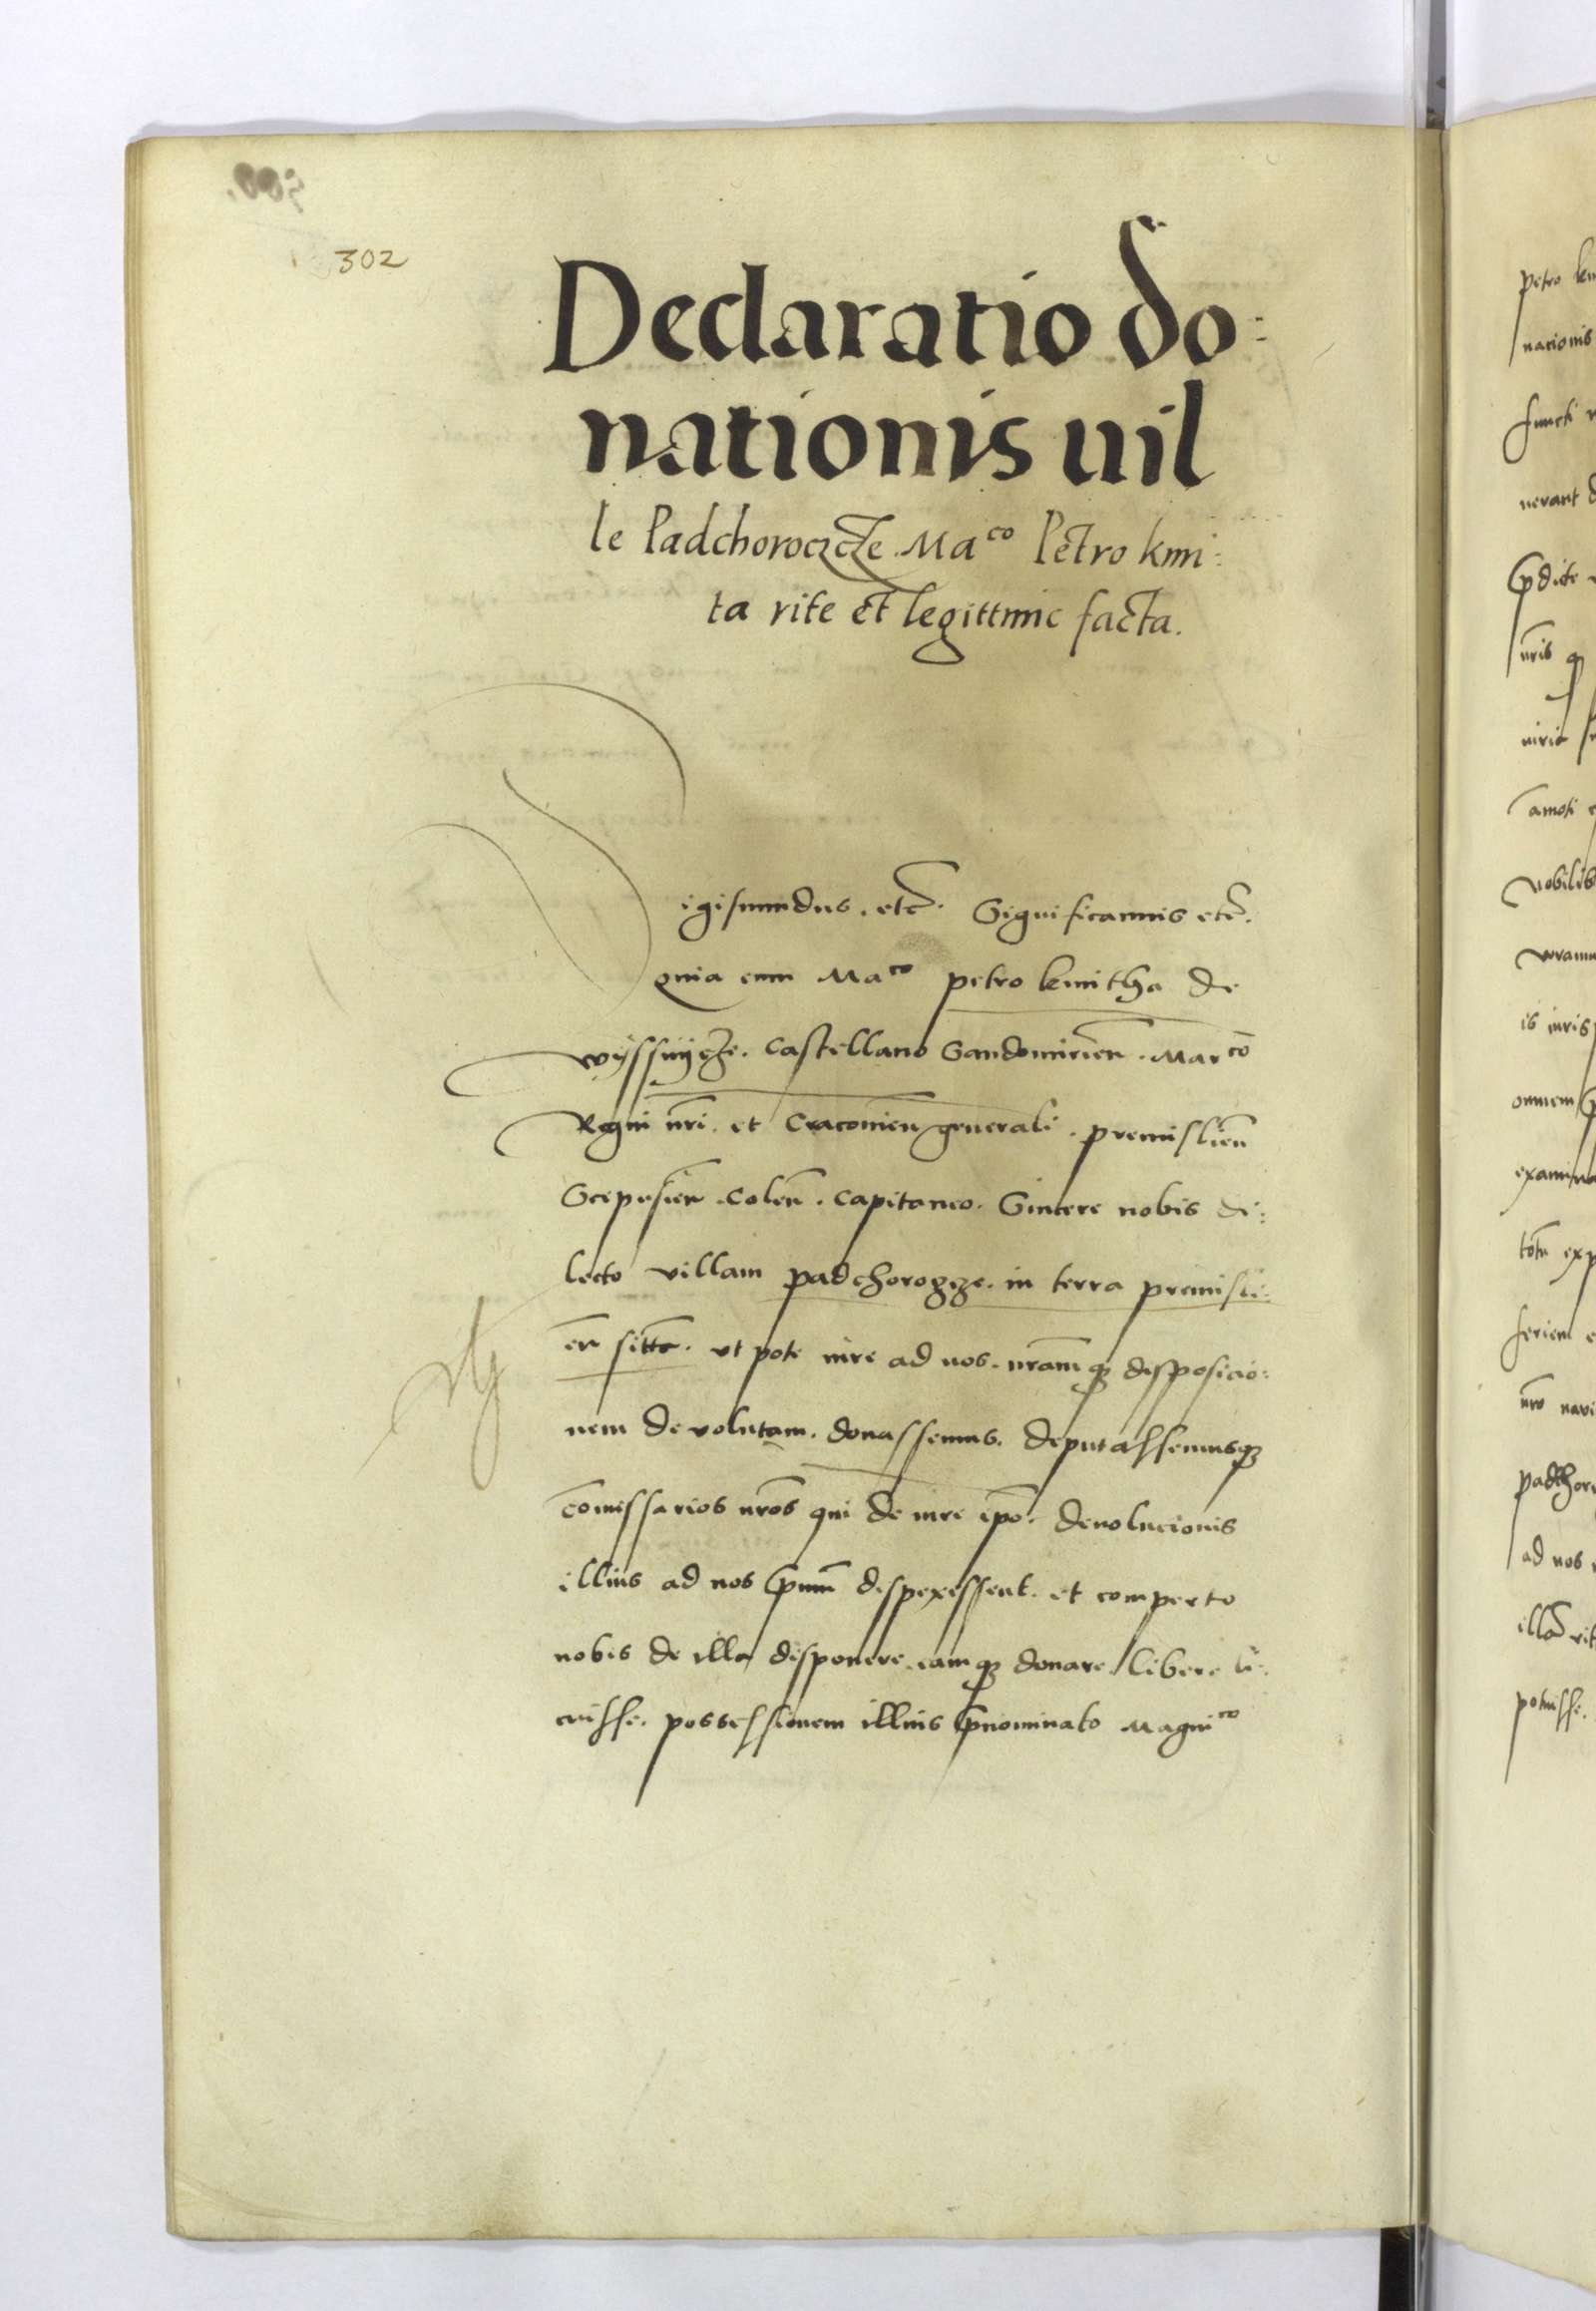 302
Declaratio do:
nationis uil
le Padchoroczcze Ma^co Petro kmi:
ta rite et legittime facta.
igismundus. etc. Significamus etc.
quia cum Ma^co petro kmitha de
wyssnycze. Castellano Sandomirien. Mar^co
Regni nri. et Cracovien generali. premislien
Scepusien. Colen. Capitaneo. Sincere nobis di:
lecto villam padchorozcze. in terra premisli:
en sitta. ut pote iure ad nos. nramq disposicio:
nem devolutam. donassemus. deputassemusq
comissarios nros qui de iure ipo. devolucionis
illius ad nos pmum despexissent. et comperto
nobis de illa disponere. eamq donare libere li:
cuisse. possessionem illius pnominato Magni^co
petro km
nacionis
functi
nerant d
pdicte
nris q
amoti
nobilis
is iuris
omnem
examina
totu exp
seriem e
nro navi
padchor
ad nos
illa rit
potuisse.